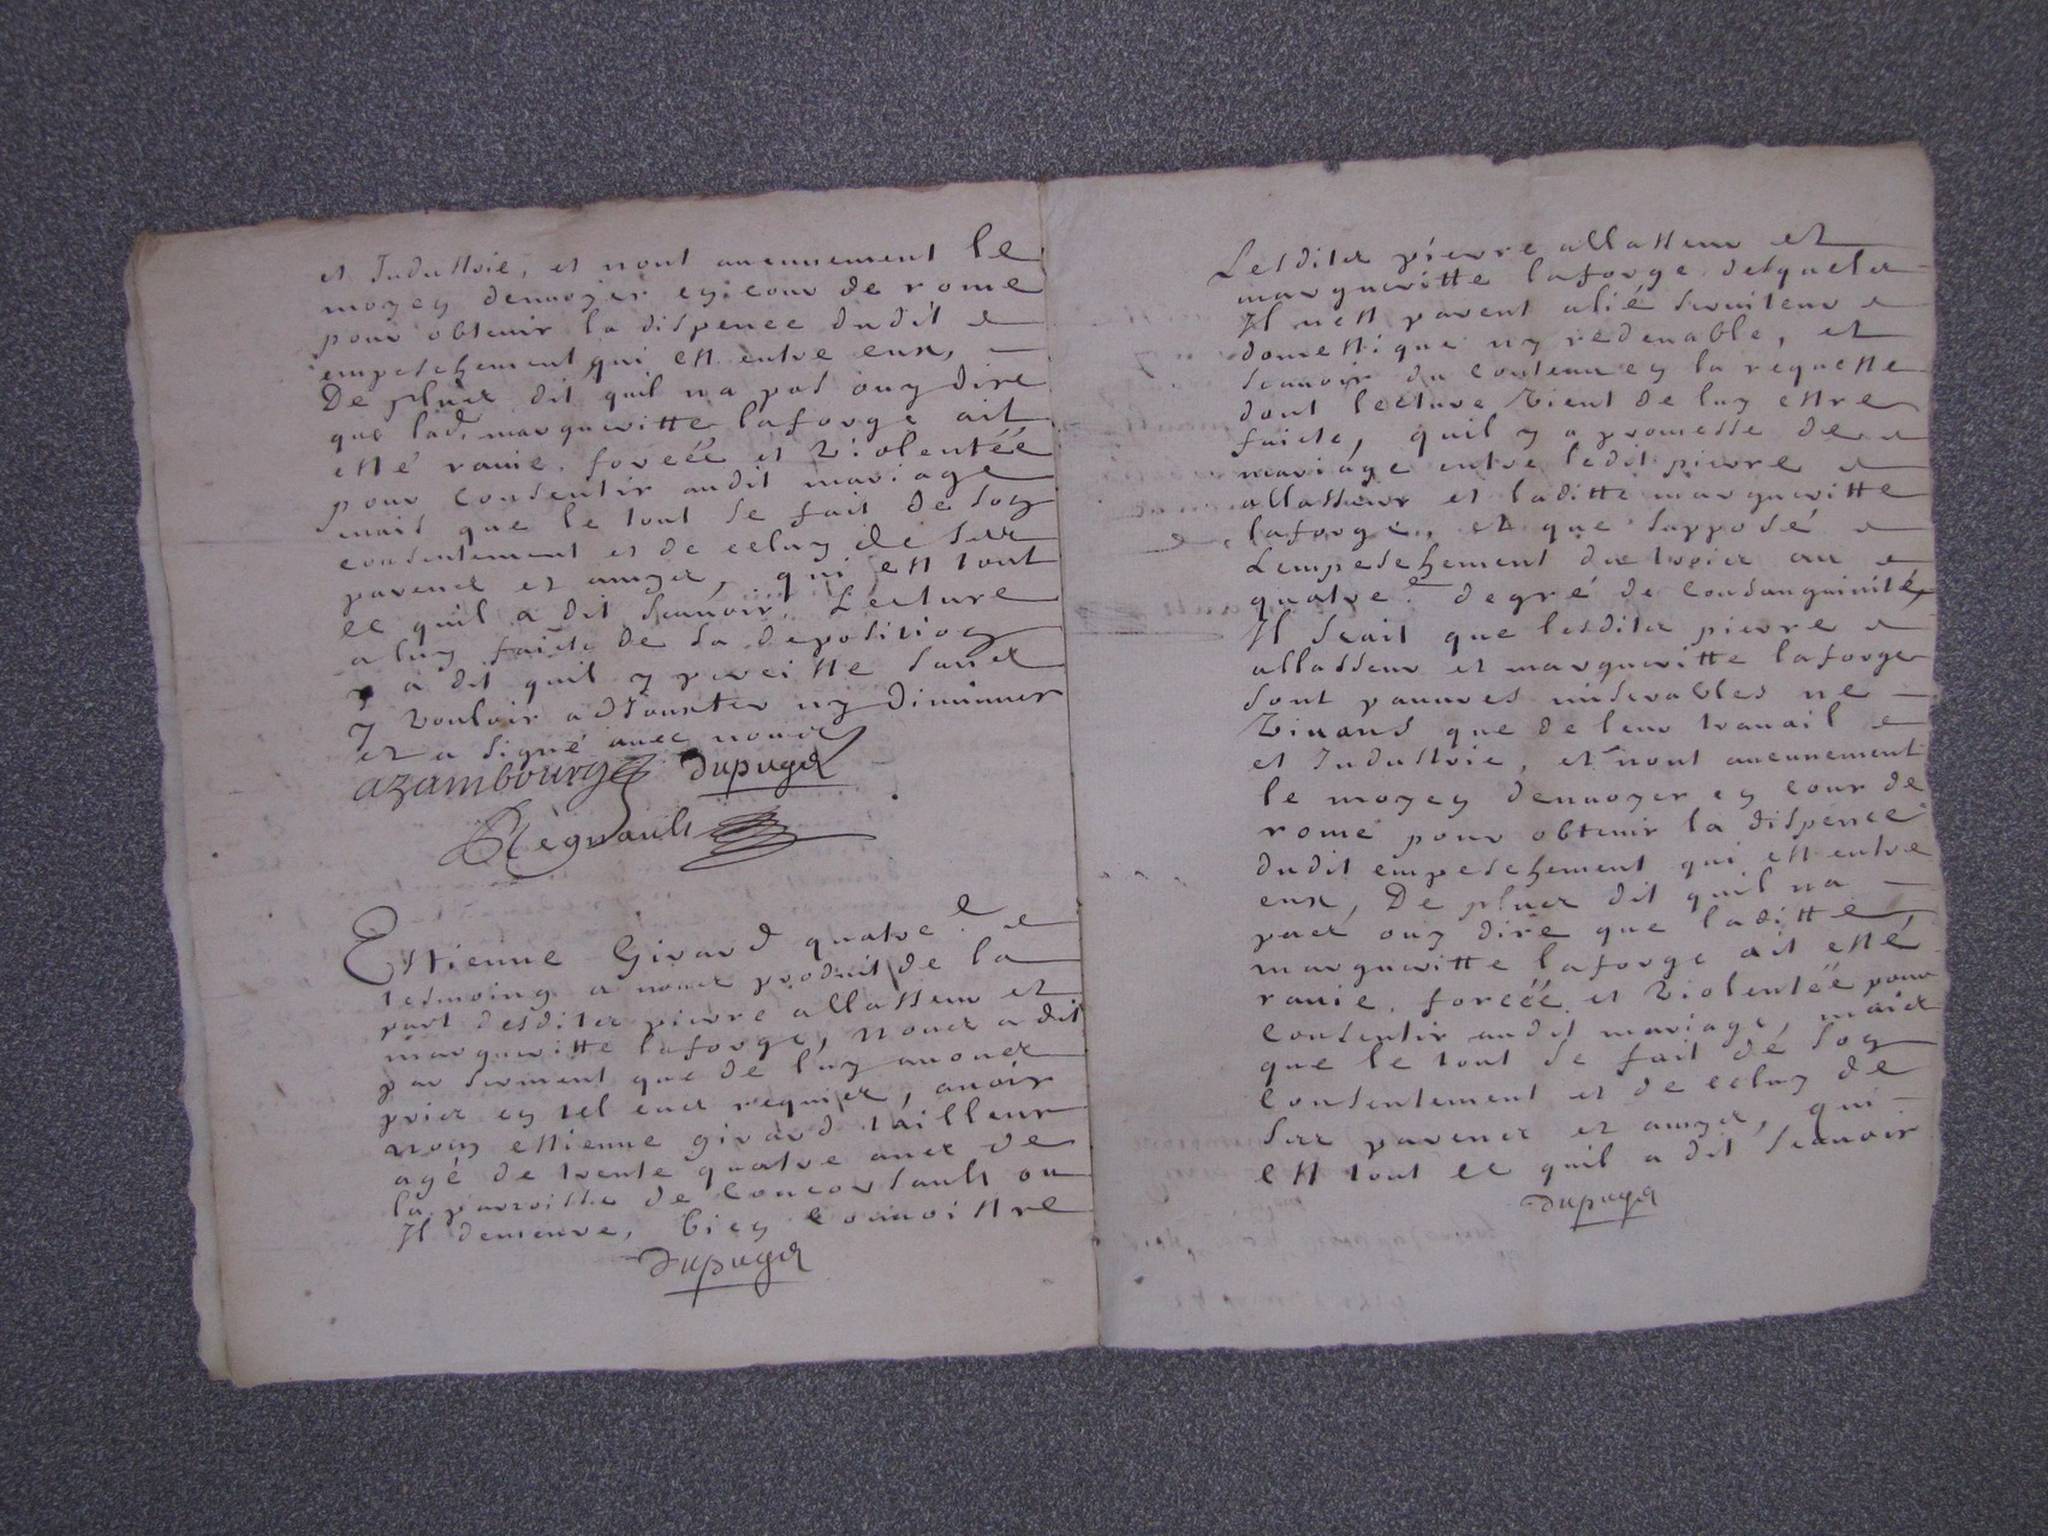 et Industrie, et nont aucunnement le
moyen denuoyer en cour de rome
pour obtenir la dispence dudit
empeschement qui est entre eux,
De plus dit quil na pas ouy dire
que lad. margueritte laforge ait
esté rauie, forcéé et violentéé
pour consentir audit mariage
mais que le tout se fait de son
consentement et de celuy de ses
parens et amys, qui est tout
ce quil a dit scauoir. Lecture
a luy faicte de sa deposition
a dit quil y persiste sans
y vouloir adiouxter ny diminuer
et a signé auec nous
azambourg Dupuys
Regnault
Estienne Girard quatre e
tesmoing a nous produit de la
part desdits pierre allasseur et
margueritte laforge, nous a dit
par serment que de luy auons
pris en tel cas requis, auoir
nom estienne girard tailleur
agé de trente quatre ans de
la parroisse de concorsault ou
Il demeure, bien connoistre
Dupuys
Lesdits pierre allasseur et
margueritte laforge desquels
Il nest parent alié seruiteur
domestique ny redeuable, et
scauoir du contenu en la requeste
dont lecture vient de luy estre
faicte, quil y a promesse de
mariage entre ledit pierre
allasseur et laditte margueritte
laforge, et que supposé
Lempeschement du trois au
quatre e degré de consanguinité,
Il scait que lesdits pierre
allasseur et margueritte laforge
sont pauures miserables ne
viuans que de leur trauail
et Industrie, et nont aucunnement
le moyen denuoyer en cour de
rome pour obtenir la dispence
dudit empeschement qui est entre
eux, De plus dit quil na
pas ouy dire que laditte
margueritte laforge ait esté
rauie, forcéé et violentéé pour
consentir audit mariage, mais
que le tout se fait de son
consentement et de celuy de
ses parens et amys, qui
est tout ce quil a dit scauoir
Dupuys